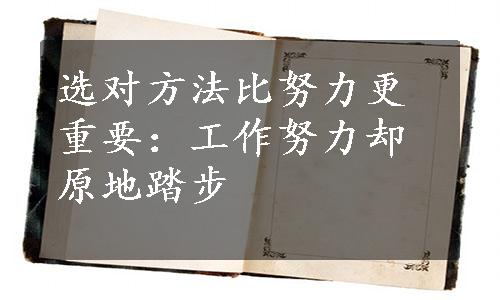 选对方法比努力更
重要：工作努力却
原地踏步